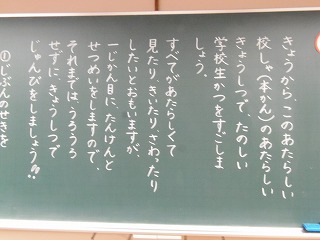 きょうから、このあたらしい
校しゃ(本かん)のあたらしい
きょうしつで、たのしい
学校生かつをすごしま
しょう。
すべてがあたらしくて
見たり、きいたり、さわったり
したいとおもいますが、
一じかん目に、たんけんと
せつめいをしますので、
それまでは、うろうろ
せずに、きょうしつで
じゅんびをしましょう!!
①じぶんのせきを